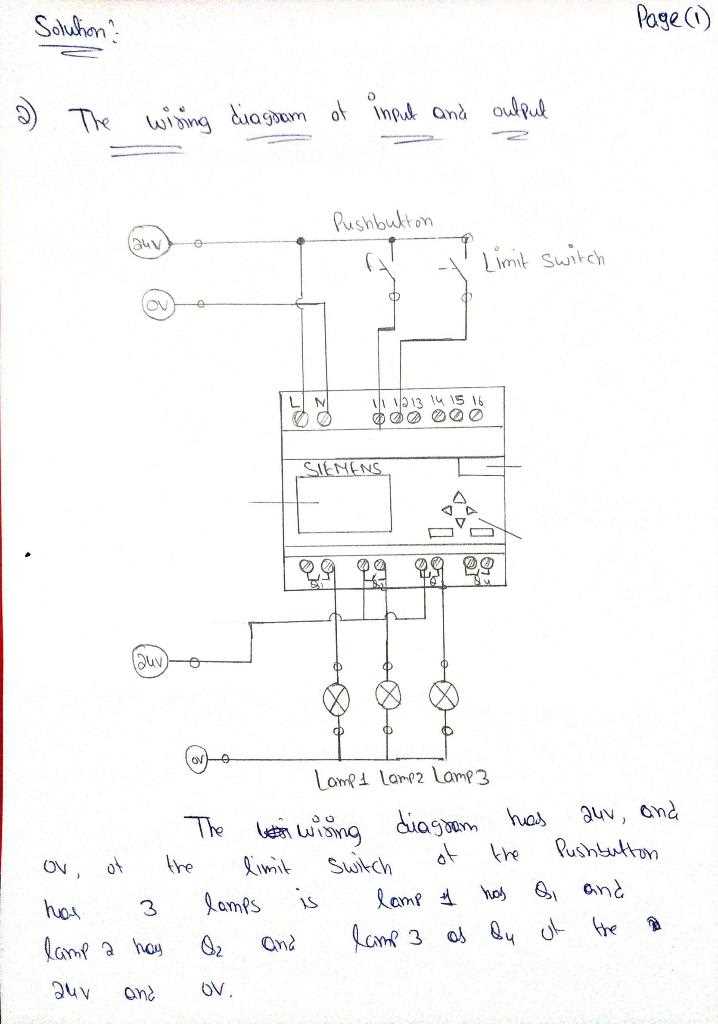 Solution:
Page (1)
2) The wiring diagram of input and output
Pushbutton
24V
Limit Switch
0V
L N I1 I2 I3 I4 I5 I6
SIEMENS
Q1 Q2 Q Q4
24V
0V
Lamp1 Lamp2 Lamp3
The wiring diagram has 24V, and
0V, of the limit switch of the Pushbutton
has 3 lamps is lamp 1 has Q1 and
lamp 2 has Q2 and lamp 3 as Q4 of the
24V and 0V.